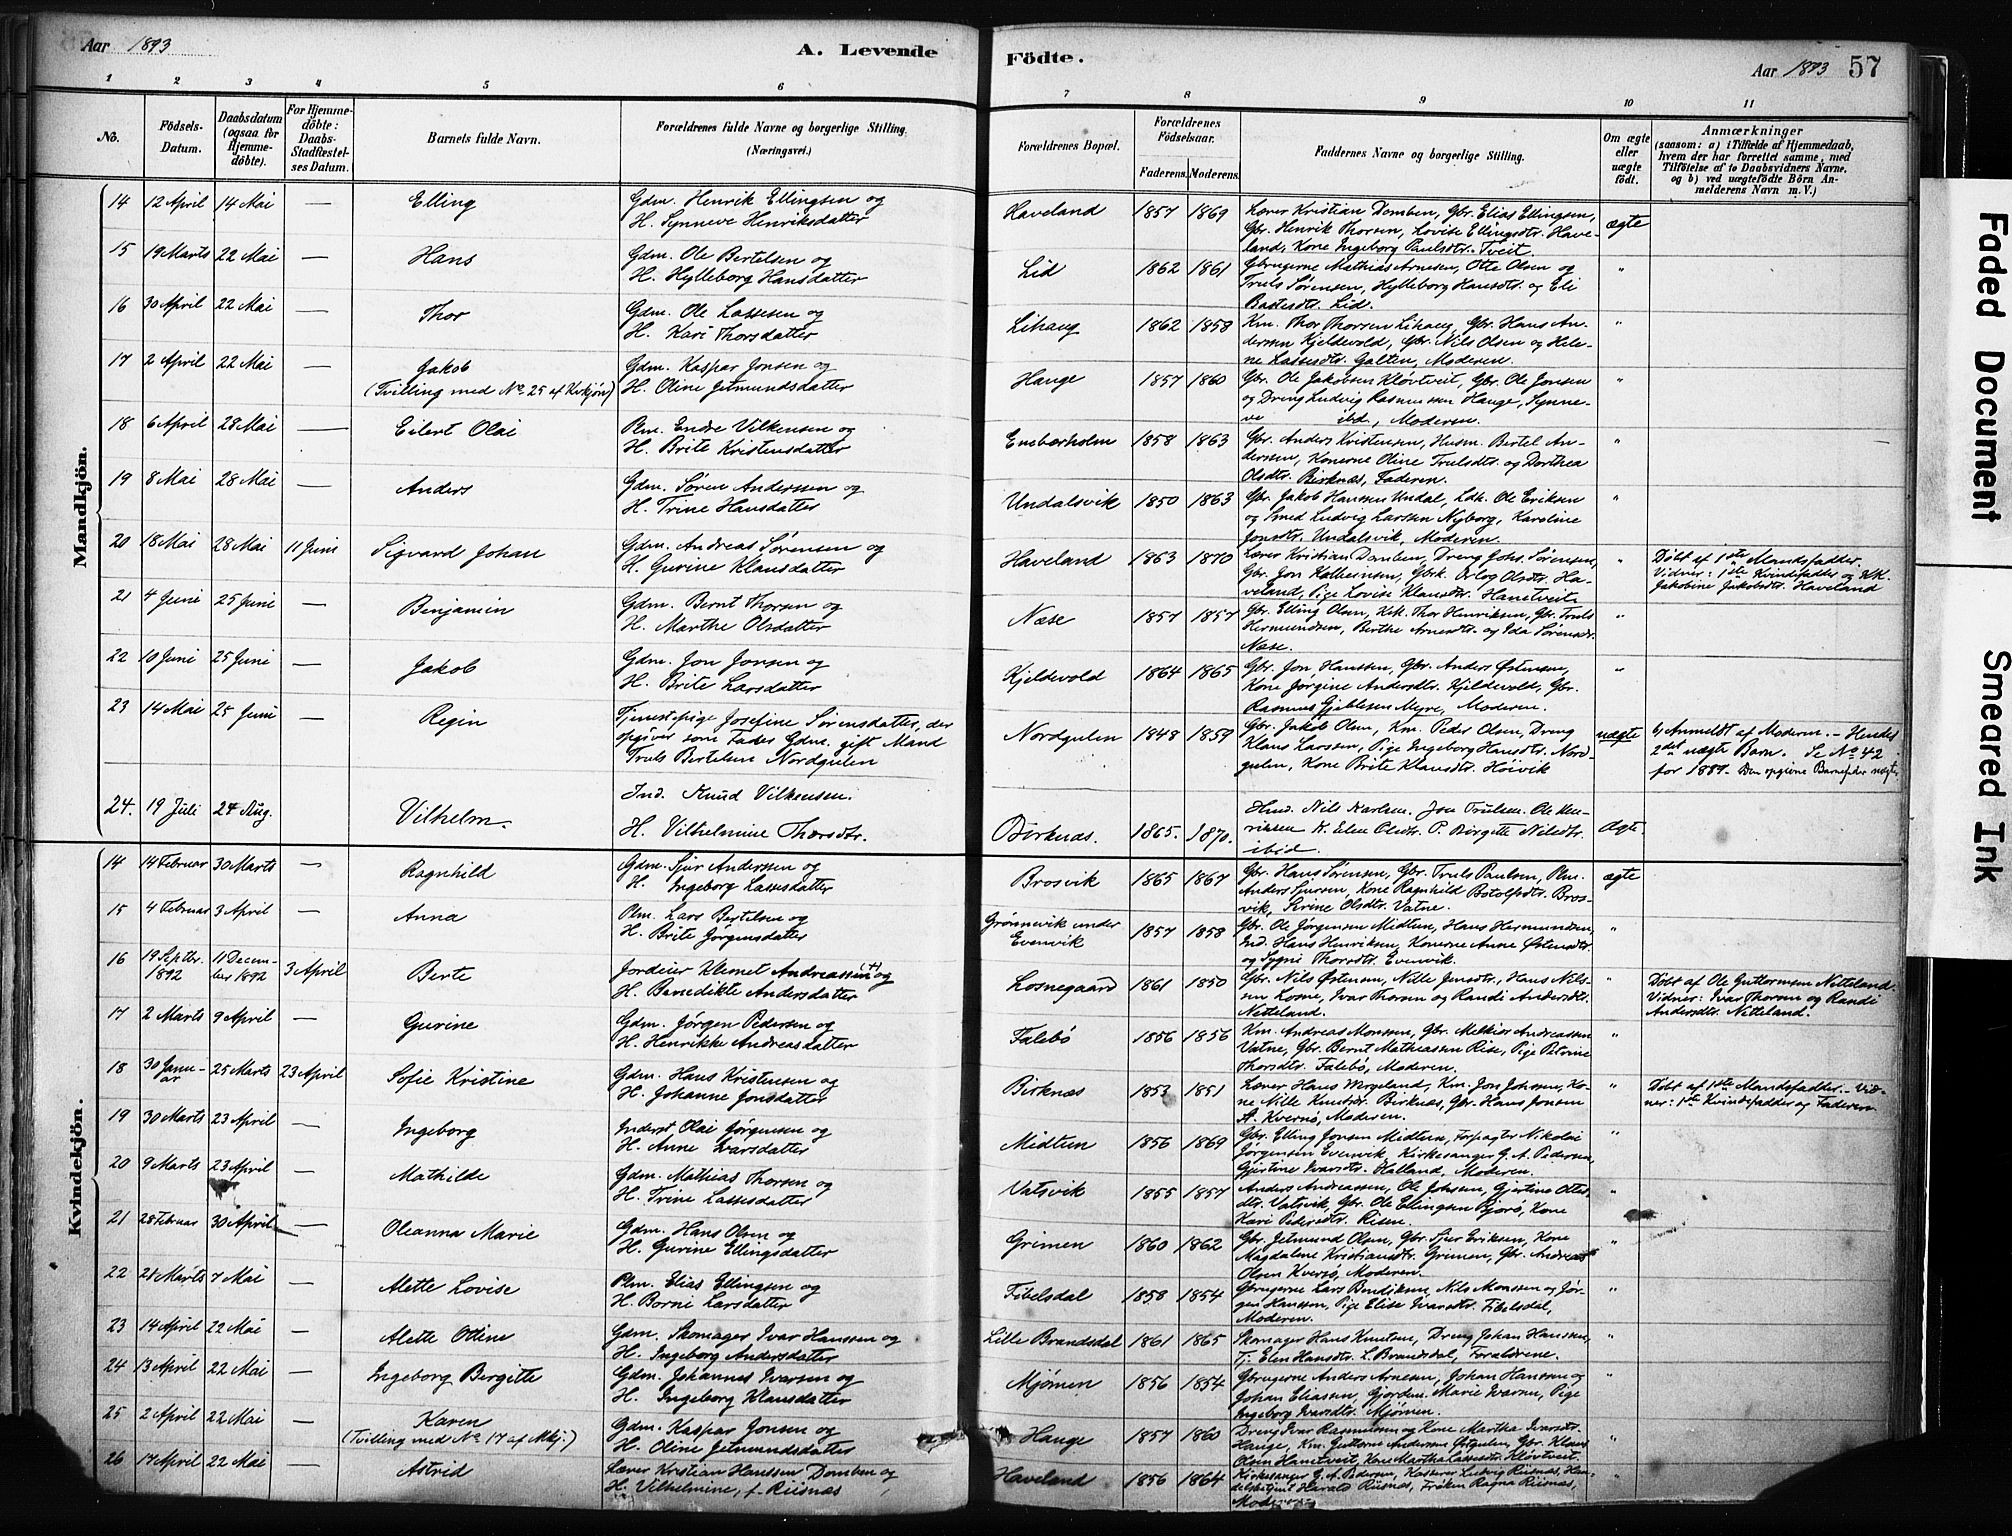 Aar 1893
A. Levende
Födte.
Aar 1893 57
1 2 3 4 5 6 7 8 9 10 11
No.
Födsels-
Datum.
Daabsdatum
(ogsaa for
Hjemme-
döbte).
For Hjemme-
döbte:
Daabs-
Stadfæstel-
ses Datum.
Barnets fulde Navn.
Forældrenes fulde Navne og borgerlige Stilling.
(Næringsvei.)
Forældrenes Bopæl.
Forældrenes
Födselsaar.
Faderens. Moderens.
Faddernes Navne og borgerlige Stilling.
Om ægte
eller
uægte
födt.
Anmærkninger
(saasom: a) i Tilfælde af Hjemmedaab,
hvem der har forrettet samme, med
Tilföielse af to Daabsvidners Navne.
og b) ved uægtefödte Börn An-
melderens Navn m. V.)
Mandkjön.
14 12 April 14 Mai — Elling
Gdm. Henrik Ellingsen og
H. Synneve Henriksdatter
Haveland 1857 1869
Lærer Kristian Domben, Gbr. Elias Ellingsen,
Gbr. Henrik Thorsen, Lovise Ellingsdtr. Have-
land, Kone Ingeborg Paulsdtr. Tveit.
ægte
15 19 Marts 22 Mai — Hans
Gdm. Ole Bertelsen og
H. Hylleborg Hansdatter
Lid 1862 1861
Gbrugerne Mathias Arnesen, Otte Olsen og
Truls Sørensen, Hylleborg Hansdtr. og Eli
Lid.
"
16 30 April 22 Mai — Thor
Gdm. Ole Lassesen og
H. Kari Thorsdatter
Lihaug 1862 1858
Km. Thor Thorsen Lihaug, Gbr. Hans An-
derssen Kjeldevold, Gbr. Nils Olsen og Hele-
ne Lassesdtr. Galten, Moderen.
"
17 2 April 22 Mai — Jakob
(Tvilling med No. 25 af Kvkjøn)
Gdm. Kaspar Jonsen og
H. Oline Jetmundsdatter
Hauge 1857 1860
Gbr. Ole Jakobsen Kløvtveit, Gbr. Ole Jonsen
og Dreng Ludvig Rasmussen Hauge, Synne-
ve ibd, Moderen.
"
18 6 April 28 Mai — Eilert Olai
Plm. Endre Vilkensen og
H. Brite Kristensdatter
Eneberholm 1858 1863
Gbr. Anders Kristensen, Husm. Bertel An-
derssen, Konerne Oline Trulsdtr. og Dorthea
Olsdtr. Birknæs, Faderen.
"
19 8 Mai 28 Mai — Anders
Gdm. Søren Anderssen og
H. Trine Hansdatter
Undalsvik 1850 1863
Gbr. Jakob Hanssen Undal, Ldh. Ole Eriksen
og Smed Ludvig Larssen Nyborg, Karoline
Jonsdtr. Undalsvik, Moderen.
"
20 18 Mai 28 Mai 11 Juni Sigvard Johan
Gdm. Andreas Sørensen og
H. Gurine Klausdatter
Haveland 1863 1870
Lærer Kristian Domben, Dreng Johs. Sørensen,
Gbr. Jon Kolbeinsen, Gbrk. Orlog Olsdtr. Ha-
veland, Pige Lovise Klausdtr. Hantveit
"
Døbt af 1ste Mandsfadder.
Vidner: 1ste Kvindefadder og KK.
Jakobine Jakobsdtr. Haveland
21 4 Juni 25 Juni — Benjamin
Gdm. Bernt Thorsen og
H. Marthe Olsdatter
Næse 1857 1857
Gbr. Elling Olsen, Kek. Thor Henriksen, Gbr. Truls
Hermundsen, Berthe Arnesdtr. og Ida Sørensdtr.
Næse.
"
22 10 Juni 25 Juni — Jakob
Gdm. Jon Jonsen og
H. Brite Larsdatter
Kjeldevold 1864 1865
Gbr. Jon Hanssen, Gbr. Anders Østensen,
Kone Jørgine Andersdtr. Kjeldevold, Gbr.
Rasmus Gjeblesen Myre, Moderen.
"
23 14 Mai 25 Juni — Regin
Tjenestepige Josefine Sørensdatter, der
opgiver som Fader Gdm. gift Mand
Truls Bertelsen Nordgulen
Nordgulen 1848 1859
Gbr. Jakob Olsen, Km. Peder Olsen, Dreng
Klaus Larssen, Pige Ingeborg Hansdtr. Nord-
gulen, Kone Brite Klausdtr. Høivik
uægte
b) Anmeldt af Moderen. — Hendes
2det uægte Barn. Se No 42
for 1889. Den opgivne Barnefader nægter
24. 19 Juli 24 Aug. Vilhelm.
Ind. Knud Vilkensen.
H. Vilhelmine Thorsdtr.
Birknæs. 1865. 1870.
Husm. Nils Karlsen. Jon Trulsen. Ole Hen-
riksen K. Elen Olsdtr. P. Birgitte Nilsdtr.
ibid.
Ægte.
Kvindekjön.
14 14 Februar 30 Marts — Ragnhild
Gdm. Sjur Anderssen og
H. Ingeborg Lassesdatter
Brosvik 1865 1867
Gbr. Hans Sørensen, Gbr. Truls Paulsen, Plm.
Anders Sjursen, Kone Ragnhild Botolfsdtr. Bros-
vik, Serine Olsdtr. Vatne.
ægte
15 4 Februar 3 April — Anna
Plm. Lars Bertelsen og
H. Brite Jørgensdatter
Grønnevik under
Evenvik
1857 1858
Gbr. Ole Jørgensen Midtun, Hans Hermundsen,
Ind. Hans Henriksen, Konerne Anne Østensdtr.
og Sygni Thorsdtr. Evenvik.
"
16 19 Septbr. 1892 11 Decem-
ber 1892 3 April Berte
Jordeier Klemet Andreassen (+) og
H. Benedikte Andersdatter
Losnegaard 1861 1850
Gbr. Nils Østensen, Nille Jensdtr., Hans Nils-
sen Losne, Ivar Thorsen og Randi Andersdtr.
Nitteland.
"
Døbt af Ole Guttormsen Nitteland.
Vidner: Ivar Thorsen og Randi
Andersdtr. Nitteland.
17 2 Marts 9 April — Gurine
Gdm. Jørgen Pedersen og
H. Henrikke Andreasdatter
Falebö 1856 1856
Km. Andreas Monssen, Gbr. Melkior Andreassen
Vatne, Gbr. Bernt Mathiassen Rise, Pige Petrine
Thorsdtr. Falebø, Moderen.
"
18 30 Janu-
ar 25 Marts 23 April Sofie Kristine
Gdm. Hans Kristensen og
H. Johanne Jonsdatter
Birknæs 1853 1851
Lærer Hans Wergeland, Km. Jon Johssen, Ko-
ne Nille Knutsdtr. Birknæs, Gbr. Hans Jonsen
St. Kvernø, Moderen.
"
Døbt af 1ste Mandsfadder. Vid-
ner: 1ste Kvindefadder og Faderen.
19 30 Marts 23 April — Ingeborg
Inderst Olai Jørgensen og
H. Anne Ivarsdatter
Midtun 1856 1869
Gbr. Elling Jonsen Midtun, Forpagter Nikolai
Jørgensen Evenvik, Kirkesanger G. A. Pedersen,
Gjertine Ivarsdtr. Halland, Moderen.
"
20 9 Marts 23 April — Mathilde
Gdm. Mathias Thorsen og
H. Trine Lassesdatter
Vatsvik 1855 1857
Anders Andreassen, Ole Johssen, Gjertine Ottes-
dtr. Vatsvik, Gbr. Ole Ellingsen Bjorø, Kone
Kari Pedersdtr. Risen.
"
21 28 Februar 30 April — Oleanna Marie
Gdm. Hans Olsen og
H. Gurine Ellingsdatter
Grimen 1860 1862
Gbr. Jetmund Olsen, Gbr. Sjur Eriksen, Kone
Magdalene Kristiansdtr. Grimen, Gbr. Andreas
Olsen Kversø, Moderen.
"
22 28 Marts 7 Mai — Alette Lovise
Plm. Elias Ellingsen og
H. Borni Larsdatter
Fibelsdal 1858 1854
Gbrugerne Lars Bendiksen, Nils Monssen og Jør-
gen Hanssen, Pige Elise Ivarsdtr. Fibelsdal,
Moderen.
"
23 14 April 22 Mai — Alette Otine
Gdm. Skomager Ivar Hanssen og
H. Ingeborg Andersdatter
Lille Brandsdal 1861 1865
Skomager Hans Knutsen, Dreng Johan Hanssen,
Tj. Elen Hansdtr. L. Brandsdal, Forældrene.
"
24 13 April 22 Mai — Ingeborg Bergitte
Gdm. Johannes Ivarsen og
H. Ingeborg Klausdatter
Mjømen 1856 1854
Gbrugerne Anders Arnesen, Johan Hanssen og
Johan Eliassen, Gjordem. Marie Ivarsen, Pige
Ingeborg Ivarsdtr. Mjømen.
"
25 2 April 22 Mai — Karen
(Tvilling med No 17 af Mkj.)
Gdm. Kaspar Jonsen og
H. Oline Jetmundsdatter
Hauge 1857 1860
Dreng Ivar Rasmussen og Kone Martha Ivarsdtr.
Hauge, Km. Guttorm Anderssen Østgulen, Gbr. Klaus
Olsen Hantveit, Kone Martha Lassesdtr. Kløvtveit.
"
26 17 April 22 Mai — Astrid
Lærer Kristian Hanssen Domben og
H. Vilhelmine, f. Riisnæs
Haveland 1856 1864
Kirkesanger G. A. Pedersen, Kasserer Ludvig Riisnæs, Han-
delsbetjent Harald Riisnæs, Frøken Ragna Riisnæs,
Moderen.
"
Faded Document
Smeared Ink